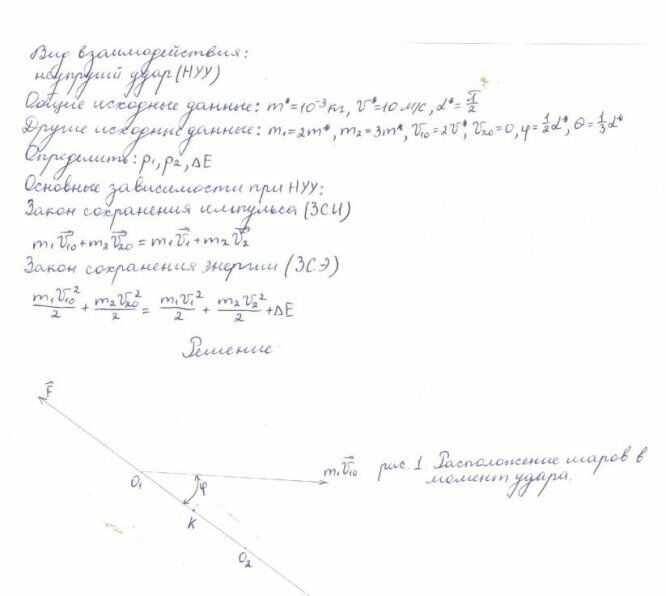 Вид взаимодействия:
неупругий удар (НУУ)
Общие исходные данные: m*=10⁻³кг, V*=10 м/с, α*=π/2
Другие исходные данные: m₁=2m*, m₂=3m*, V₁₀=2V*, V₂₀=0, φ=1/2α*, θ=1/3α*
Определить: p₁, p₂, ΔE
Основные зависимости при НУУ:
Закон сохранения импульса (ЗСИ)
m₁V⃗₁₀+m₂V⃗₂₀=m₁V⃗₁+m₂V⃗₂
Закон сохранения энергии (ЗСЭ)
m₁V₁₀²/2 + m₂V₂₀²/2 = m₁V₁²/2 + m₂V₂²/2 + ΔE
Решение
F⃗
O₁
φ
K
O₂
m₁V⃗₁₀
рис. 1. Расположение шаров в
момент удара.